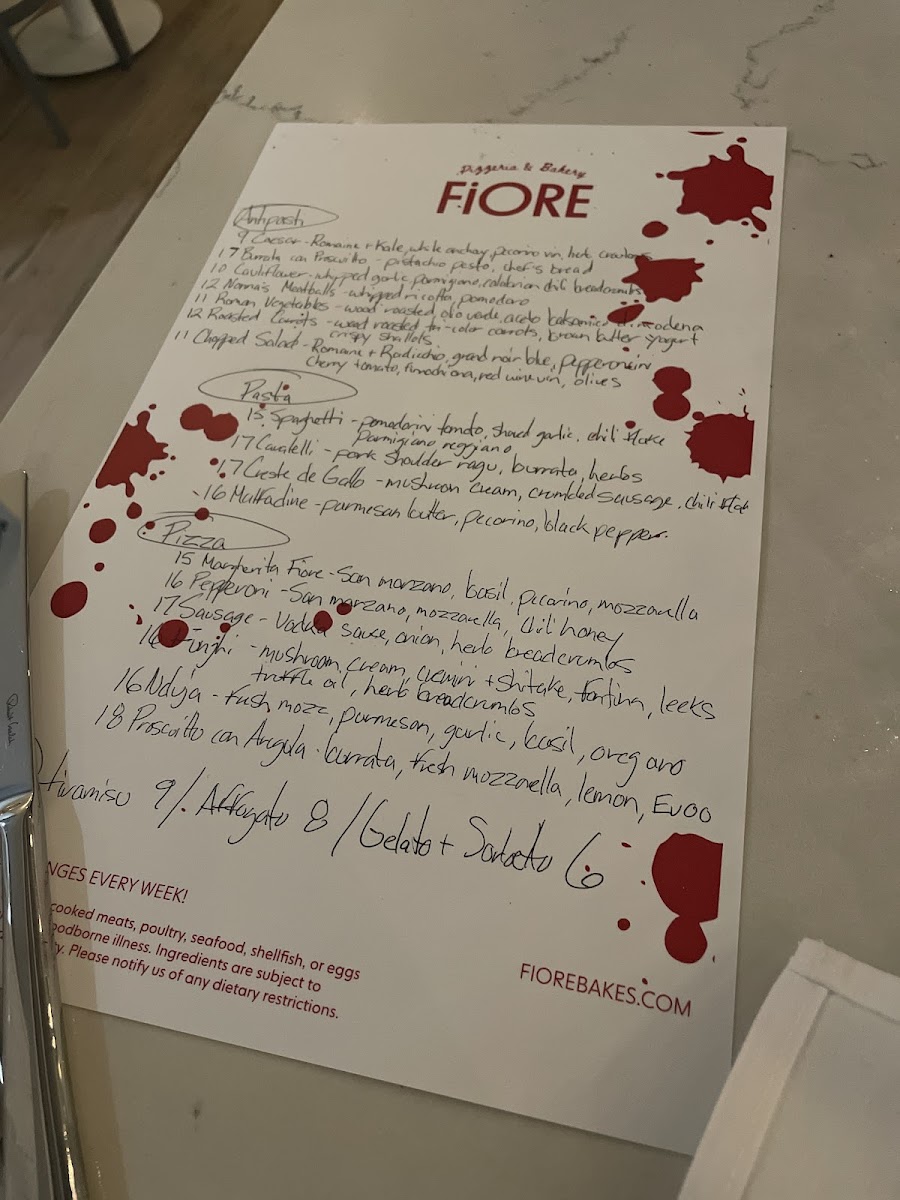 Pizzeria & Bakery
FiORE
Antipasti
9 Caesar - Romaine + Kale, white anchovy, pecorino vin, herb croutons
17 Burrata con Proscuitto - pistachio pesto, chef's bread
10 Cauliflower - whipped garlic, parmigiano, calabrian chili breadcrumbs
12 Nonna's Meatballs - whipped ricotta, pomodoro
11 Roman Vegetables - wood roasted, olio verde, aceto balsamico di modena
12 Roasted Carrots - wood roasted tri-color carrots, brown butter yogurt
crispy shallots
11 Chopped Salad - Romaine + Radicchio, grand noir blue, pepperoncini
cherry tomato, finochiona, red wine vin, olives
Pasta
15 Spaghetti - pomodorini tomato, shaved garlic, chili flake
parmigiano reggiano
17 Cavatelli - pork shoulder ragu, burrata, herbs
17 Creste de Gallo - mushroom cream, crumbled sausage, chili flake
16 Malfadine - parmesan butter, pecorino, black pepper
Pizza
15 Margherita Fiore - San marzano, basil, picorino, mozzarella
16 Pepperoni - San marzano, mozzarella, chili honey
17 Sausage - Vodka sauce, onion, herb breadcrumbs
16 Funghi - mushroom cream, cremini + shitake, fontina, leeks
truffle oil, herb breadcrumbs
16 Nduja - fresh mozz, parmesan, garlic, basil, oregano
18 Proscuitto con Arugula - burrata, fresh mozzarella, lemon, Evoo
tiramisu 9 / Affogato 8 / Gelato + Sorbetto 6
NGES EVERY WEEK!
cooked meats, poultry, seafood, shellfish, or eggs
oodborne illness. Ingredients are subject to
ty. Please notify us of any dietary restrictions.
FIOREBAKES.COM